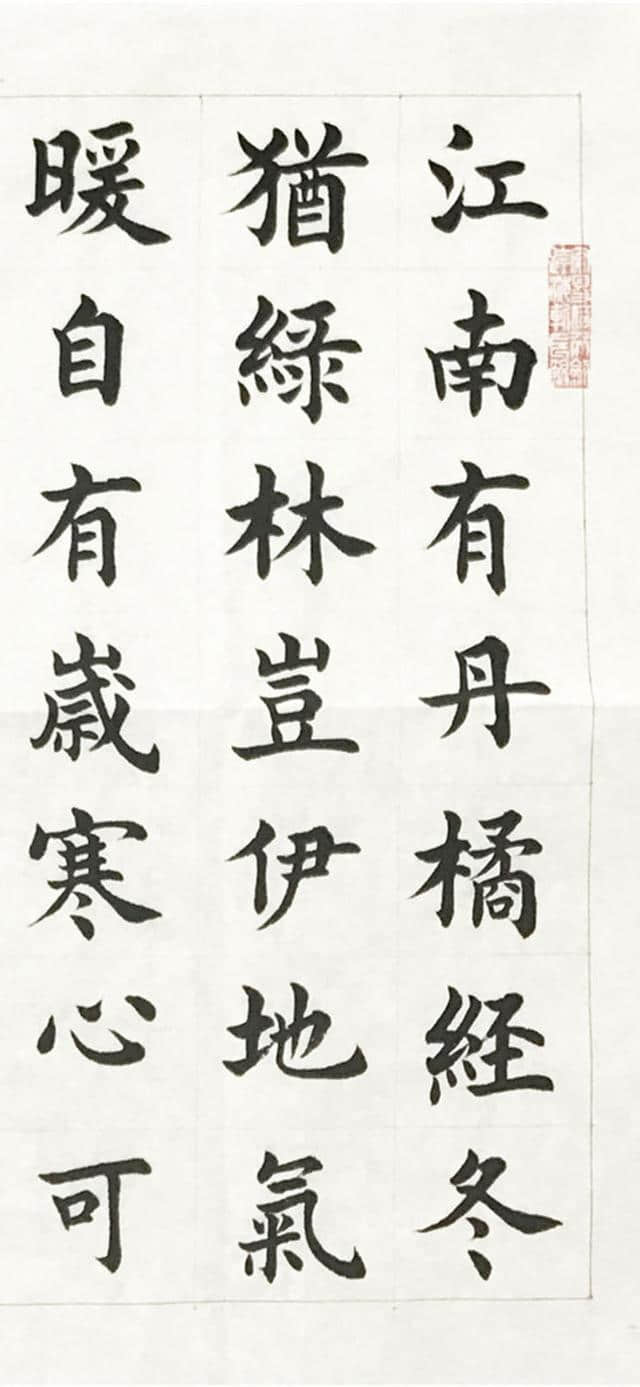 江南有丹橘経冬
猶綠林豈伊地氣
暖自有歳寒心可